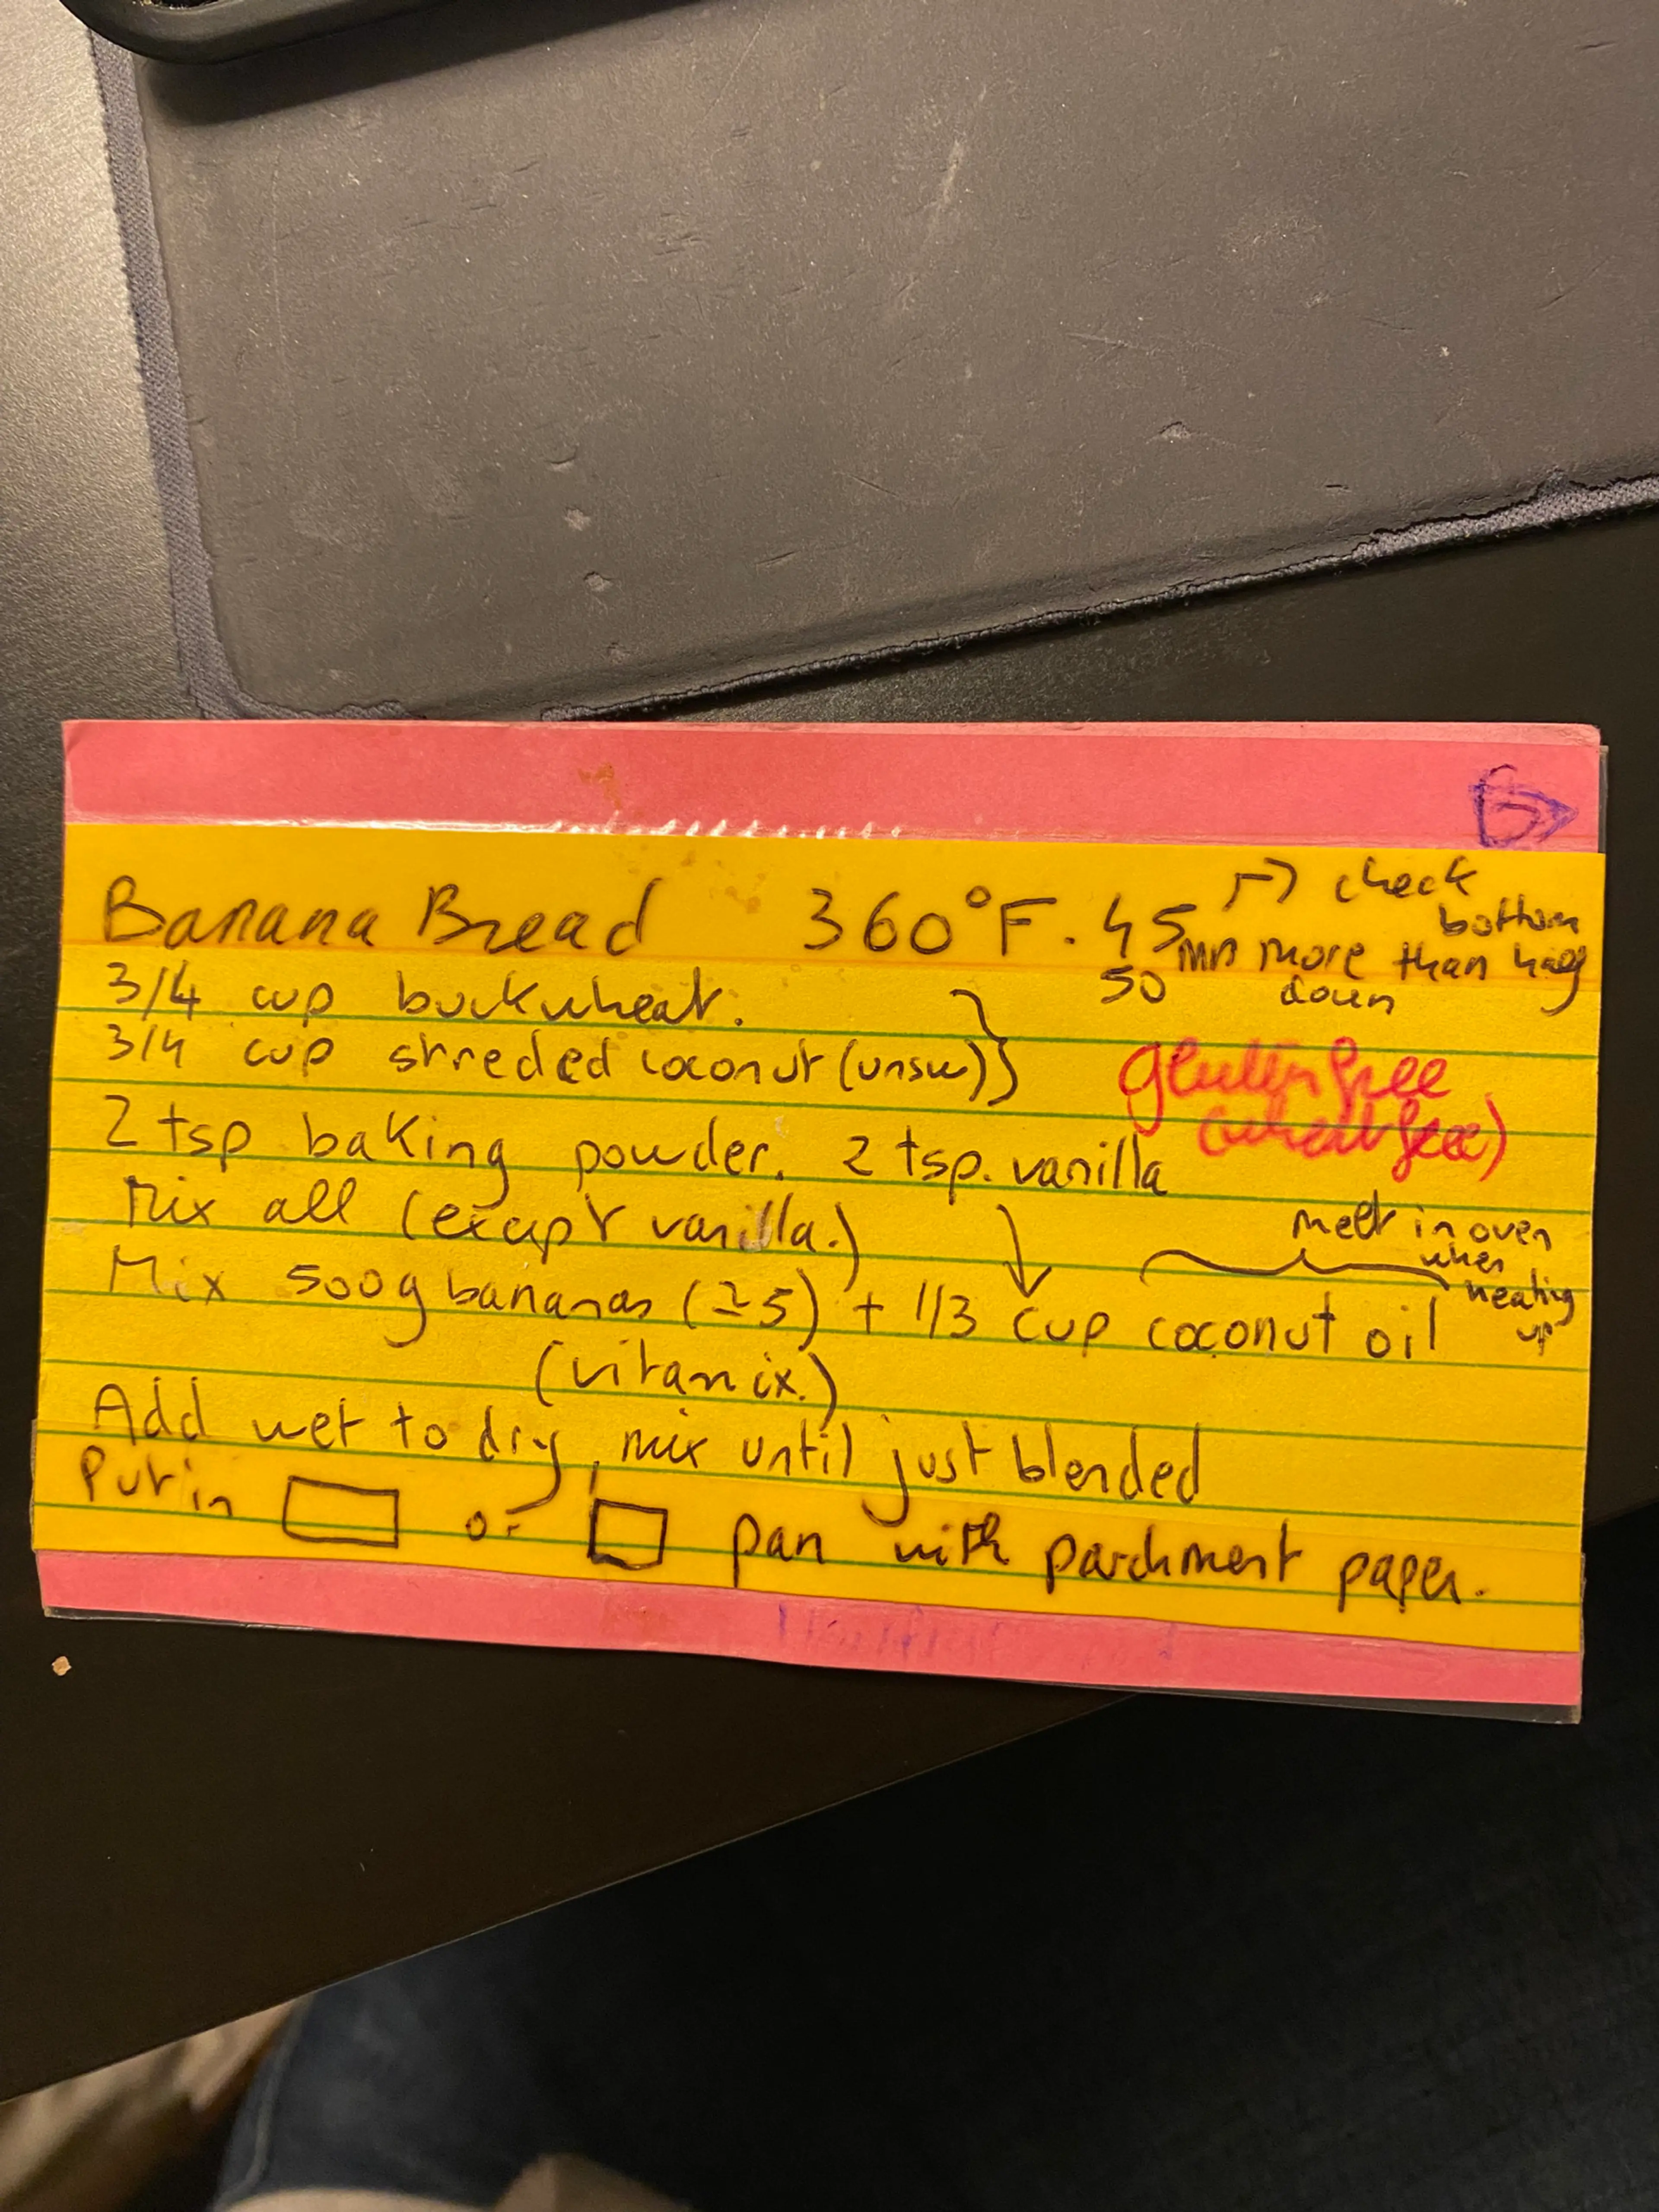 B
Banana Bread 360°F. 45 → check
bottom
50 min more than half
down
3/4 cup buckwheat.
3/4 cup shreded coconut (unsw)
gluten free
(wheat free)
2 tsp baking powder. 2 tsp. vanilla
Mix all (except vanilla.)
melt in oven
when
heating
up
Mix 500g bananas (≃5) + 1/3 cup coconut oil
(vitamix.)
Add wet to dry, mix until just blended
Put in or pan with parchment paper.